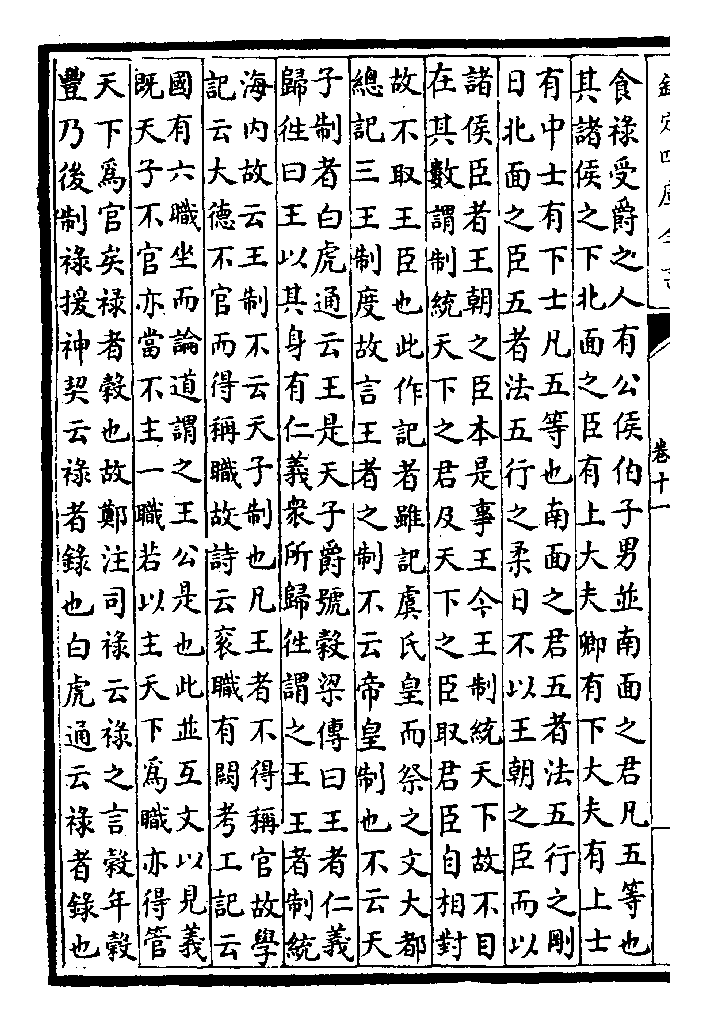 欽定四庫全書
卷十一
食祿受爵之人有公侯伯子男並南面之君凡五等也
其諸侯之下北面之臣有上大夫卿有下大夫有上士
有中士有下士凡五等也南面之君五者法五行之剛
日北面之臣五者法五行之柔日不以王朝之臣而以
諸侯臣者王朝之臣本是事王今王制統天下故不目
在其數謂制統天下之君及天下之臣取君臣自相對
故不取王臣也此作記者雖記虞氏皇而祭之文大都
總記三王制度故言王者之制不云帝皇制也不云天
子制者白虎通云王是天子爵號穀梁傳曰王者仁義
歸徃曰王以其身有仁義衆所歸徃謂之王王者制統
海内故云王制不云天子制也凡王者不得稱官故學
記云大德不官而得稱職故詩云衮職有闕考工記云
國有六職坐而論道謂之王公是也此並互文以見義
既天子不官亦當不主一職若以主天下爲職亦得管
天下爲官矣祿者穀也故鄭注司祿云祿之言穀年穀
豐乃後制祿援神契云祿者錄也白虎通云祿者錄也